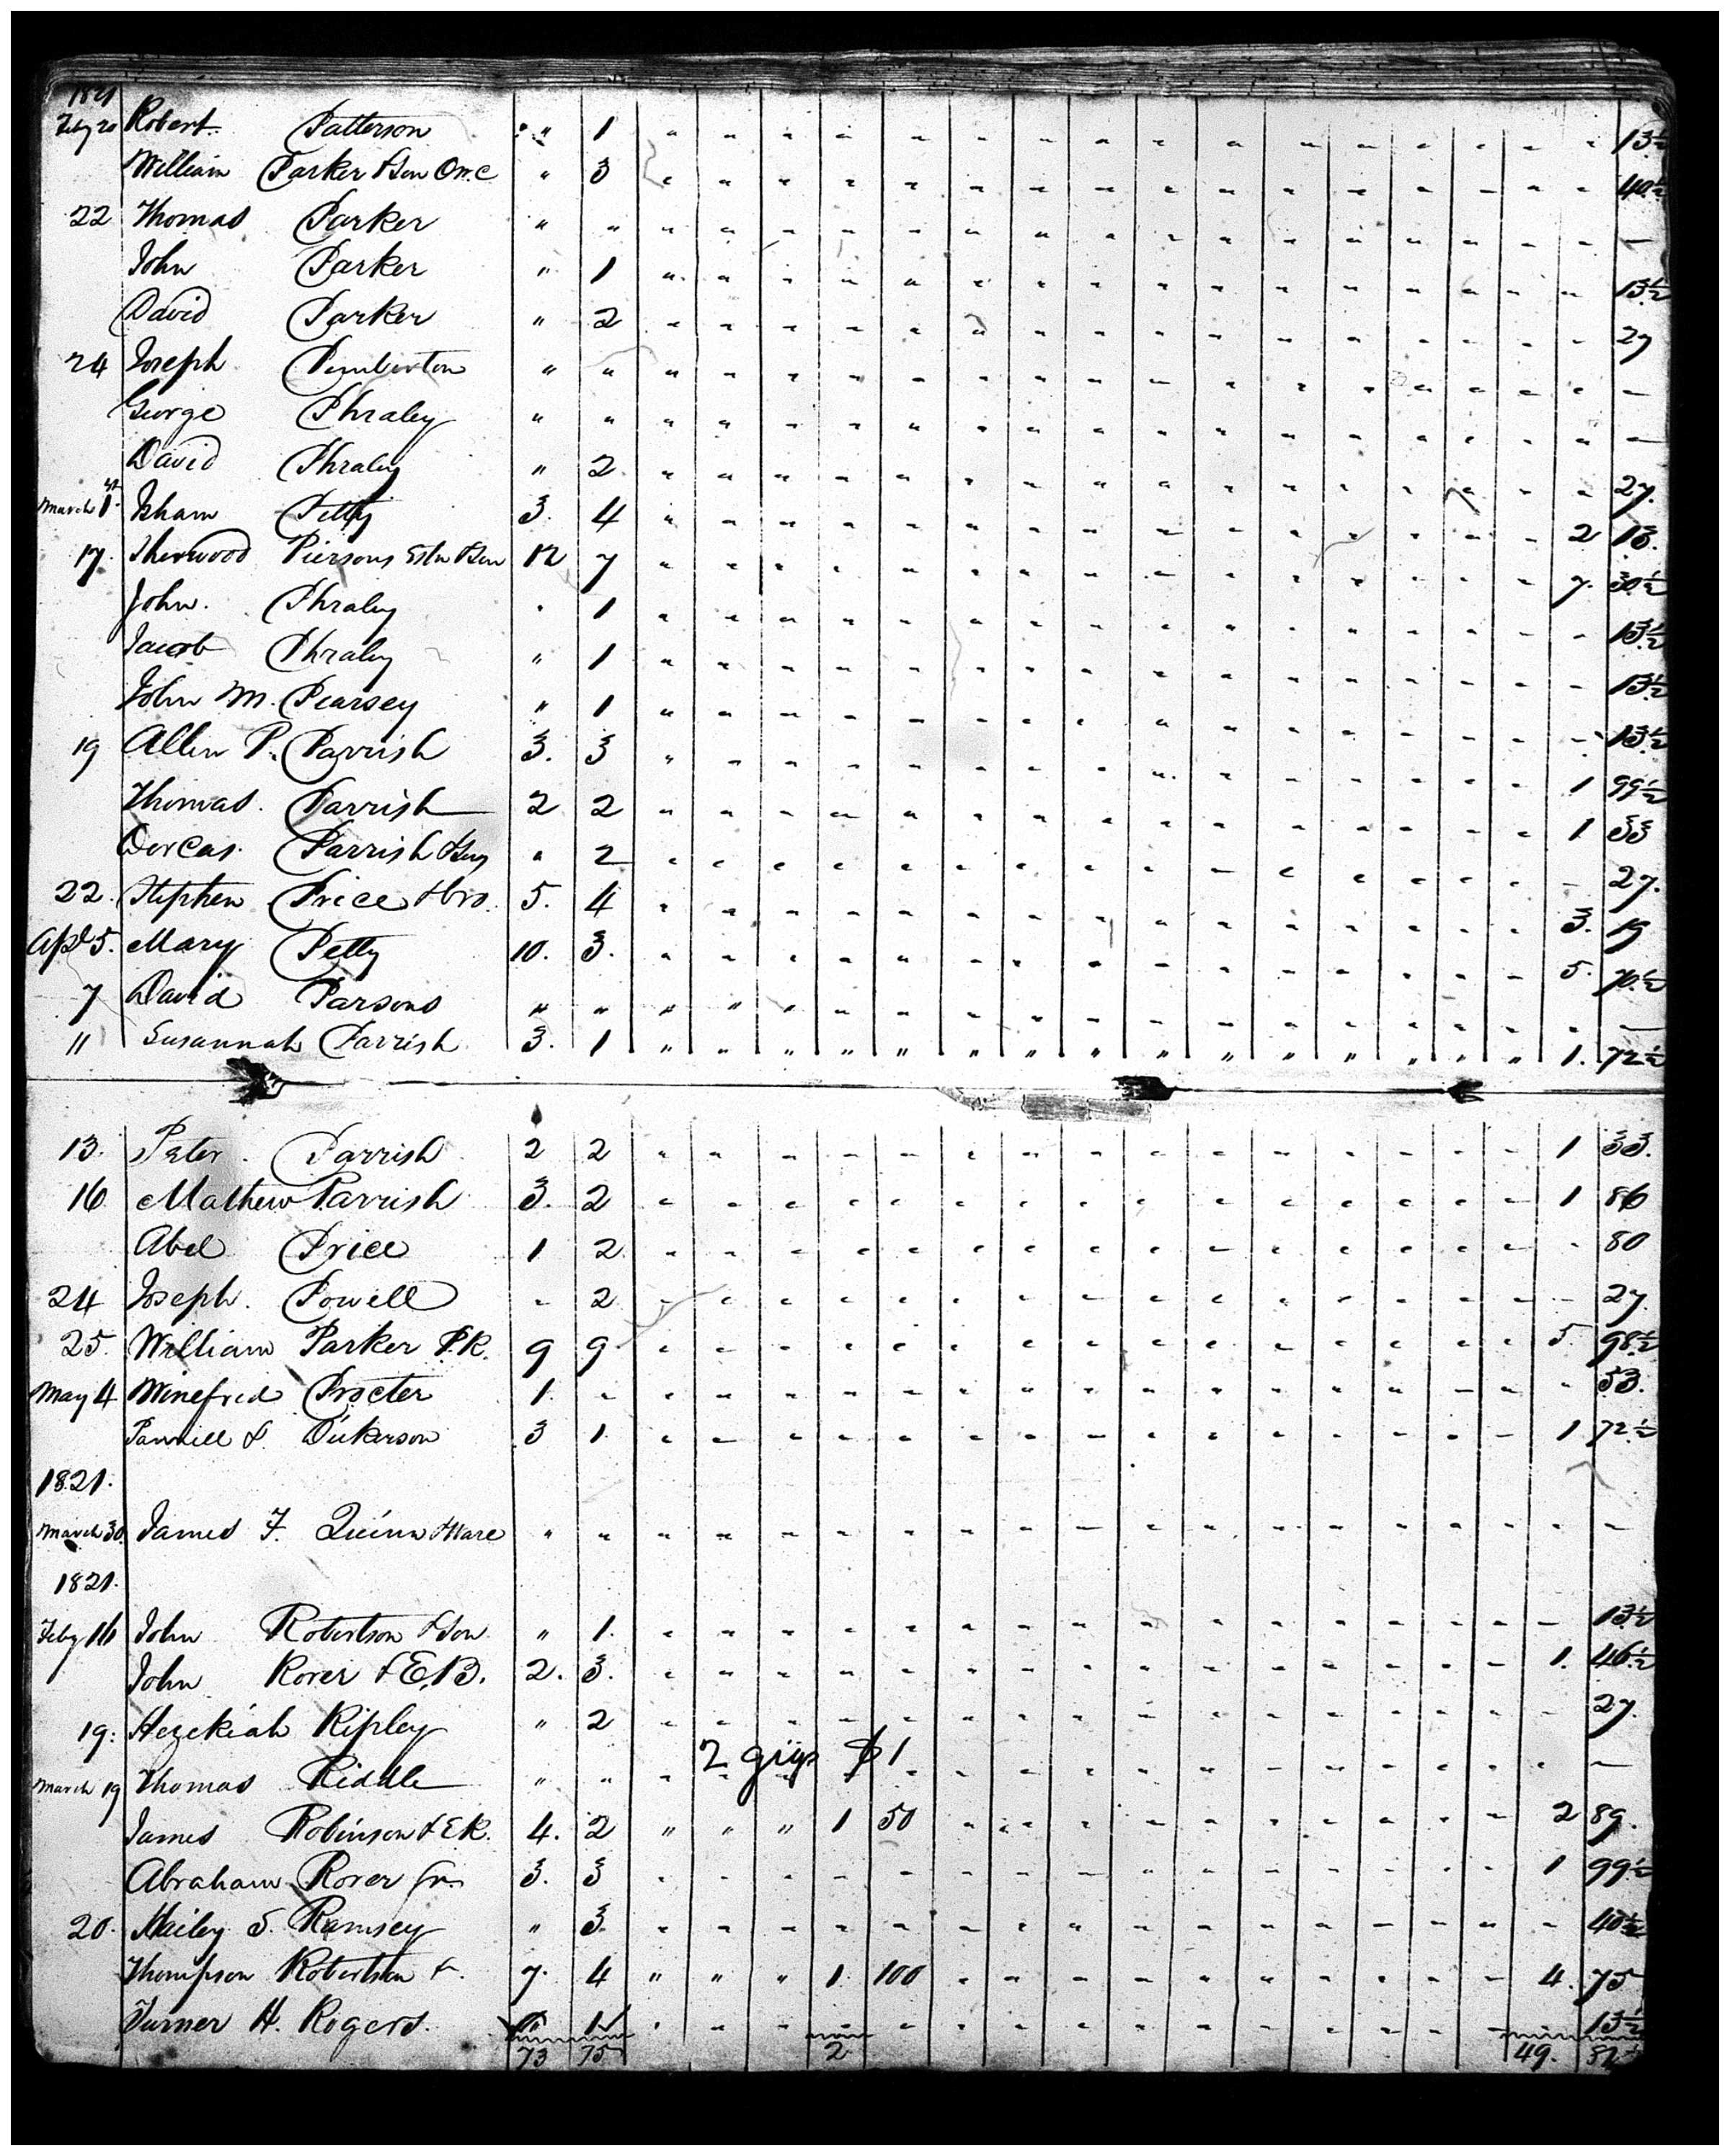 1821
Feby 20 Robert Patterson " 1 13½
William Parker & Son O.W.C " 3 40½
22 Thomas Parker " " —
John Parker " 1 13½
David Parker " 2 27
24 Joseph Pemberton " " —
George Phraley " " —
David Phraley " 2 27.
March 1st Isham Petty 3. 4 2 13.
17. Sherwood Piersons Estn & Son 12 7 7. 30½
John. Phraley " 1 13½
Jacob Phraley " 1 13½
John M. Pearsey " 1 13½
19 Allen P. Parrish 3. 3 1 99½
Thomas. Parrish 2 2 1 33
Dorcas. Parrish & Guy " 2 27.
22. Stephen Price & bro. 5. 4 3. 19
Apl 5. Mary Petty 10. 3. 5. 70½
7 David Parsons " " —
11 Susannah Parrish 3. 1 1. 72½
13. Peter. Parrish 2 2 1 33.
16 Mathew Parrish 3. 2 1 86
Abel Price 1 2 80
24 Joseph. Powell - 2 27.
25. William Parker P.R. 9 9 5 98½
May 4 Winefred Procter 1. - 53.
Pannill & Dickerson 3 1 1 72½
1821.
March 30. James F. Quinn & Ware " " —
1821.
Feby 16 John Robertson & Son " 1. 13½
John Rorer & E.B. 2. 3. 1. 46½
19. Hezekiah Ripley " 2 27.
2 gigs $1
March 19 Thomas Riddle " " —
James Robinson & E R. 4. 2 " " " 1 50 2 89.
Abraham Rorer Jr. 3. 3 1 99½
20. Hailey S. Ramsey " 3. 40½
Thompson Robertson &. 7. 4 " " " 1 100 4. 75
Turner H. Rogers. 1 13½
73 75 2 49. 82½